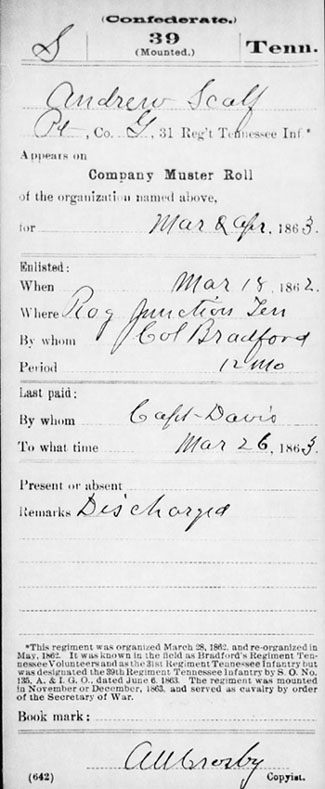 (Confederate.)
S 39 Tenn.
(Mounted.)
Andrew Scalf
Pt, Co. G, 31 Reg't Tennessee Inf.*
Appears on
Company Muster Roll
of the organization named above,
for Mar & Apr, 1863.
Enlisted:
When Mar 18, 1862.
Where Rog Junction Ten
By whom Col Bradford
Period 12 mo
Last paid:
By whom Capt Davis
To what time Mar 26, 1863.
Present or absent
Remarks Discharged
*This regiment was organized March 28, 1862, and re-organized in
May, 1862. It was known in the field as Bradford's Regiment Ten-
nessee Volunteers and as the 31st Regiment Tennessee Infantry but
was designated the 39th Regiment Tennessee Infantry by S. O. No.
135, A. & I. G. O., dated June 6, 1863. The regiment was mounted
in November or December, 1863, and served as cavalry by order
of the Secretary of War.
Book mark:
Crosby
(642) Copyist.